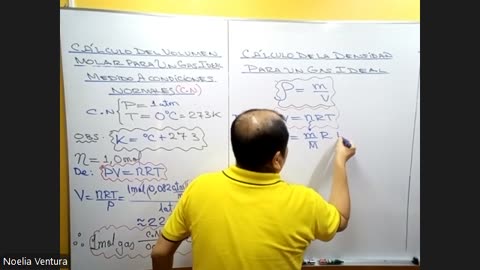 CÁLCULO DEL VOLUMEN
MOLAR PARA UN GAS IDEAL
MEDIDO A CONDICIONES
NORMALES (C.N)
C.N { P = 1atm
T = 0°C = 273K
OBS: K = °C + 273
n = 1,0 mol
De: PV = nRT
V = nRT/P = 1mol(0,082 atm
1at
≈ 22
∴ 1mol gas C.N
CÁLCULO DE LA DENSIDAD
PARA UN GAS IDEAL
ρ = m/V
V = nRT
= m/M R
Noelia Ventura